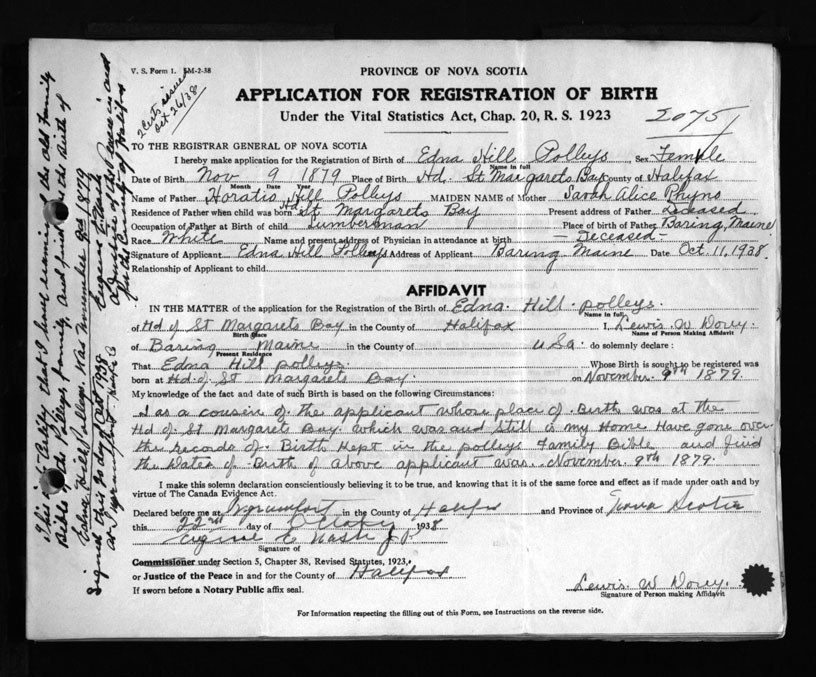 V. S. Form 1. 5M-2-38
PROVINCE OF NOVA SCOTIA
APPLICATION FOR REGISTRATION OF BIRTH
Under the Vital Statistics Act, Chap. 20, R. S. 1923
2075
2 Certs issued
Oct 26/38
TO THE REGISTRAR GENERAL OF NOVA SCOTIA
I hereby make application for the Registration of Birth of Edna Hill Polleys Sex Female
Name in full
Date of Birth Nov 9 1879 Place of Birth Hd. St Margarets Bay County of Halifax
Month Date Year
Name of Father Horatio Hill Polleys MAIDEN NAME of Mother Sarah Alice Rhyno
Residence of Father when child was born Hd St. Margarets Bay Present address of Father Deceased
Occupation of Father at Birth of child Lumberman Place of birth of Father Baring, Maine
Race White Name and present address of Physician in attendance at birth — Deceased —
Signature of Applicant Edna Hill Polleys Address of Applicant Baring Maine Date Oct. 11, 1938.
Relationship of Applicant to child
AFFIDAVIT
IN THE MATTER of the application for the Registration of the Birth of Edna Hill polleys.
Name in full
of Hd of St Margarets Bay in the County of Halifax I, Lewis W Dorey.
Birth Place Name of Person Making Affidavit
of Baring Maine in the County of U S a. do solemnly declare :
Present Residence
That Edna Hill polleys. Whose Birth is sought to be registered was
born at Hd of St Margarets Bay. on November 9th 1879.
My knowledge of the fact and date of such Birth is based on the following Circumstances:
I as a cousin of the applicant whose place of Birth was at the
Hd of St Margarets Bay which was and still is my Home Have gone over
the records of Birth Kept in the polleys Family Bible and find
the Dates of Birth of above applicant was. November 9th 1879.
I make this solemn declaration conscientiously believing it to be true, and knowing that it is of the same force and effect as if made under oath and by
virtue of The Canada Evidence Act.
Declared before me at in the County of Halifax and Province of Nova Scotia
this 22nd day of October 1938
Eugene C Nash J.P.
Signature of
Commissioner under Section 5, Chapter 38, Revised Statutes, 1923,
or Justice of the Peace in and for the County of Halifax
If sworn before a Notary Public affix seal.
Lewis W Dorey.
Signature of Person making Affidavit
For Information respecting the filling out of this Form, see Instructions on the reverse side.
This is to Certify that I have examined the old Family
Bible of the Polleys family and find that the birth of
Edna Hill Polleys was November 9th 1879
Signed this 20 day of Oct 1938
Eugene C Nash
a Justice of the Peace in and
for the County of Halifax